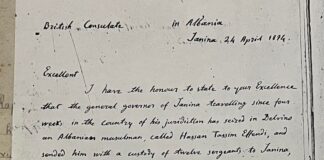 British Consulate in Albania
Janina 24 April 1874.
Excellent
I have the honour to state to your Excellence
that the general governor of Janina travelling since four
weeks in the country of his juridiction has seized in Delvino
an Albanian musulman called Hassan Tassim Effendi, and
sended him with a custody of twelve sergeants to Janina,